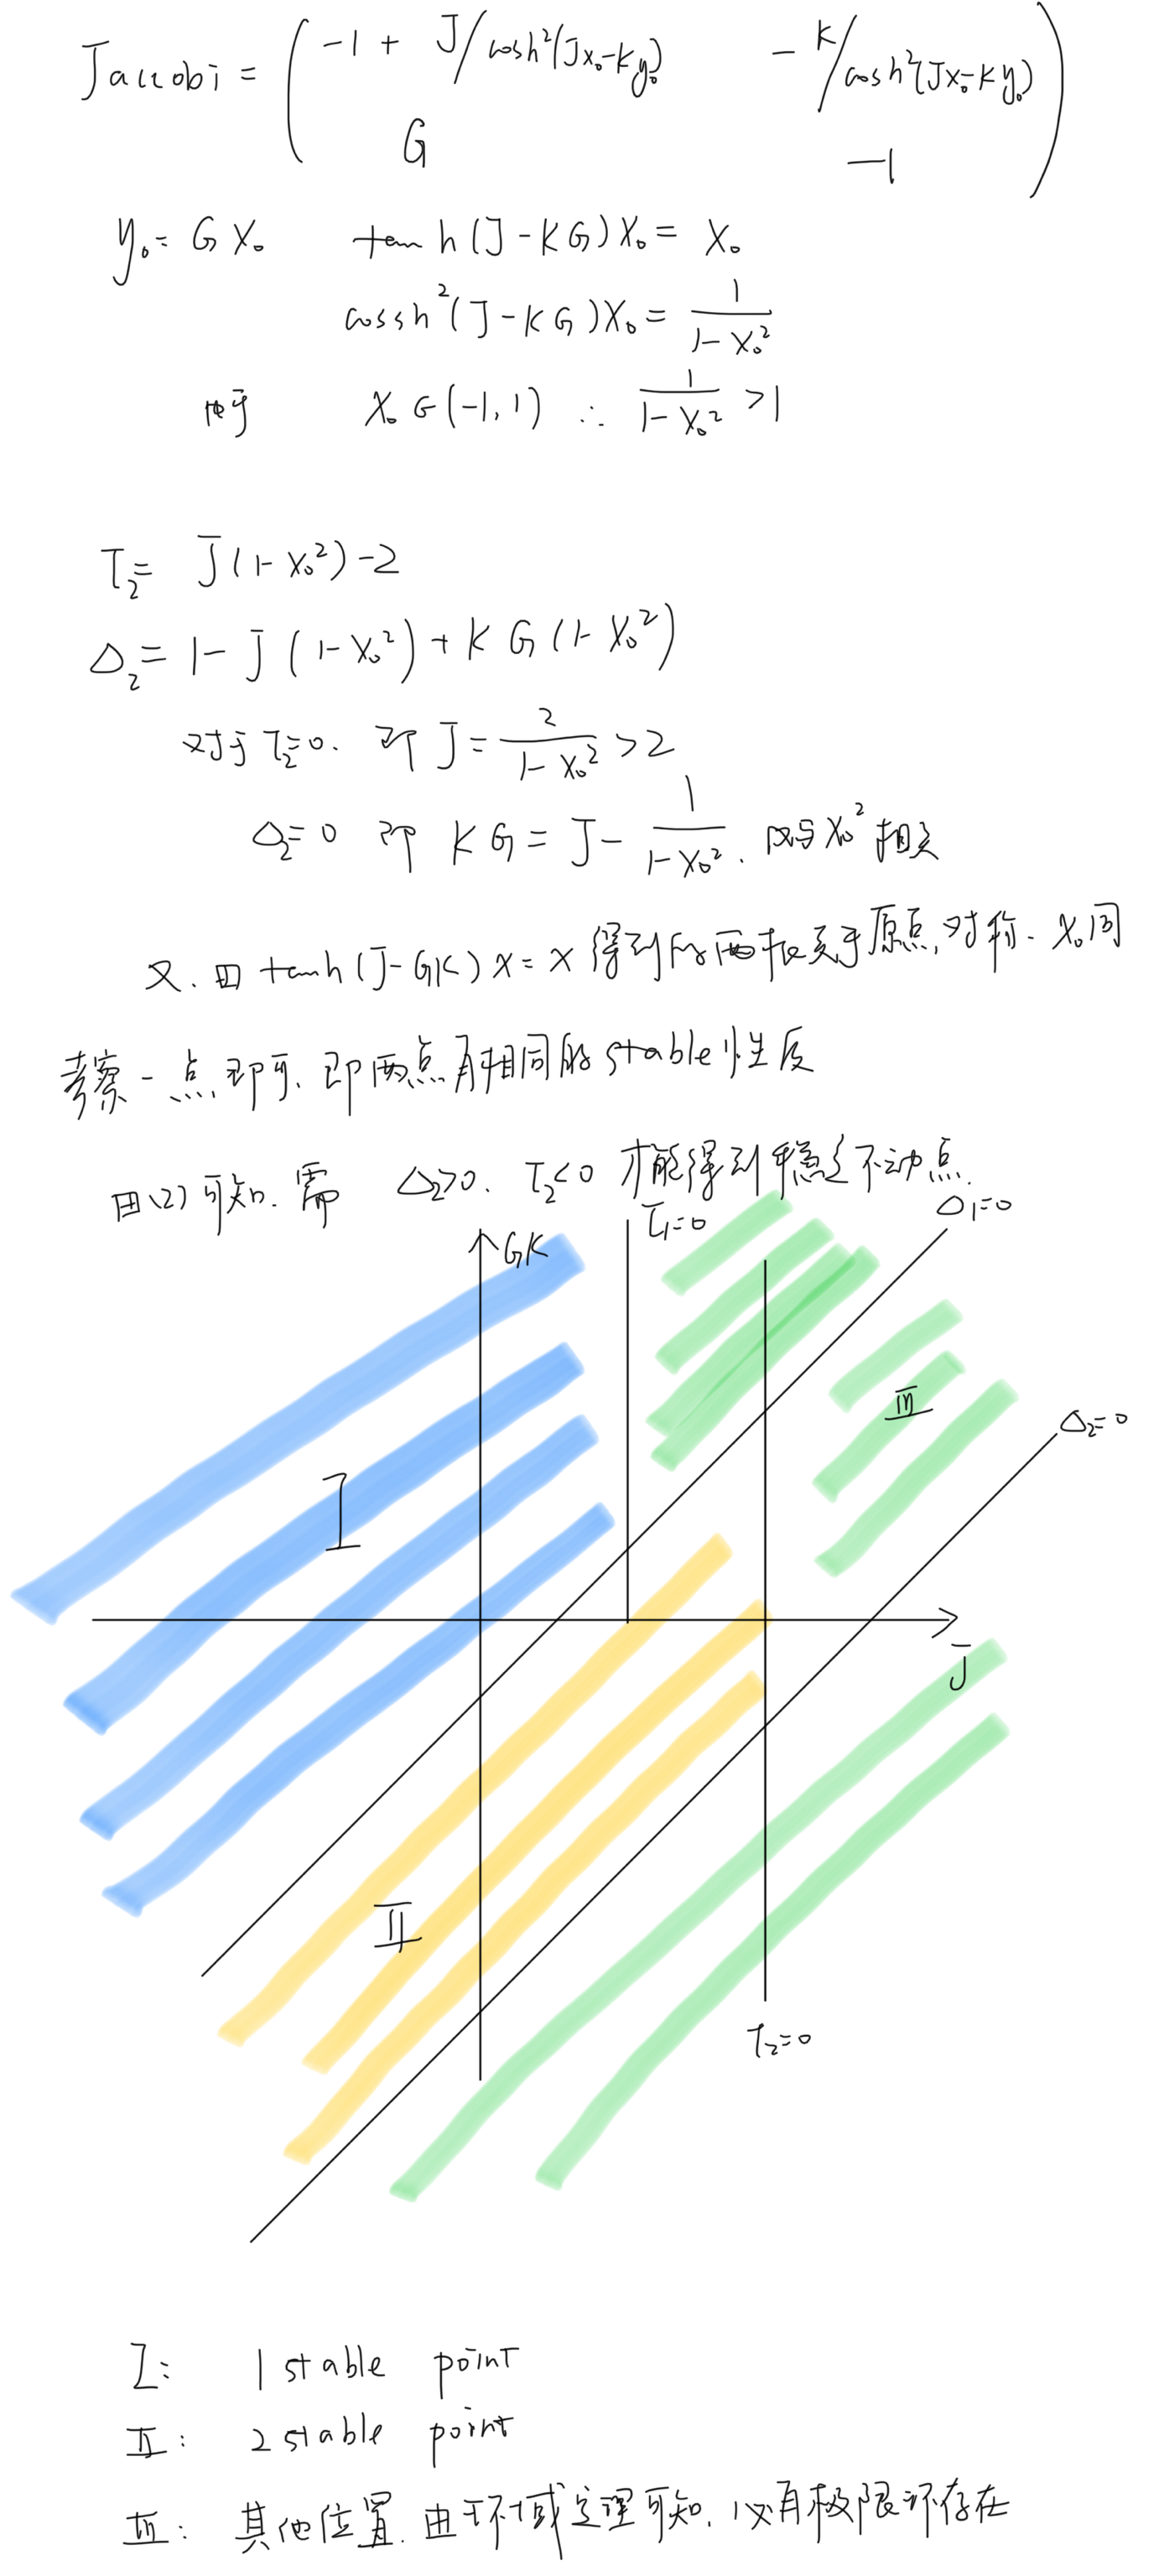 Jaccobi = ( -1 + J/cosh²(Jx₀-Ky₀)   - K/cosh²(Jx₀-Ky₀)
G   -1 )
y₀ = G X₀   tanh(J-KG)X₀ = X₀
cossh²(J-KG)X₀ = 1/(1-X₀²)
由于 X₀ ∈ (-1, 1) ∴ 1/(1-X₀²) >1
T₂= J(1-X₀²)-2
Δ₂= 1- J(1-X₀²)+ KG(1-X₀²)
对于 T₂=0. 即 J = 2/(1-X₀²) >2
Δ₂=0 即 KG = J- 1/(1-X₀²). 只与X₀²相关
又. 由 tanh(J-GK)X = X 得到的两根关于原点对称. X₀同
考察一点即可. 即两点有相同的stable性质
由(2)可知. 需 Δ₂>0. T₂<0 才能得到稳定不动点.
T₁=0
Δ₁=0
GK
Ⅲ
Δ₂=0
Ⅰ
J
Ⅱ
T₂=0
Ⅰ: 1 stable point
Ⅱ: 2 stable point
Ⅲ: 其他位置. 由环域定理可知. 必有极限环存在